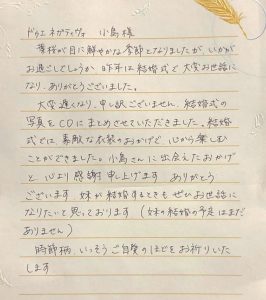 ドゥエ ネガティヴォ 小島様
葉桜が目に鮮やかな季節となりましたが、いかが
お過ごしでしょうか 昨年は結婚式で大変お世話に
なり、ありがとうございました。
大変遅くなり、申し訳ございません、結婚式の
写真をCDにまとめさせていただきました。結婚
式では、素敵な衣装のおかげで、心から楽しむ
ことができました。小島さんに出会えたおかげ
と、心より感謝申し上げます ありがとう
ございます 妹が結婚するときもぜひお世話に
なりたいと思っております (妹の結婚の予定はまだ
ありません)
時節柄、いっそうご自愛のほどをお祈りいた
します